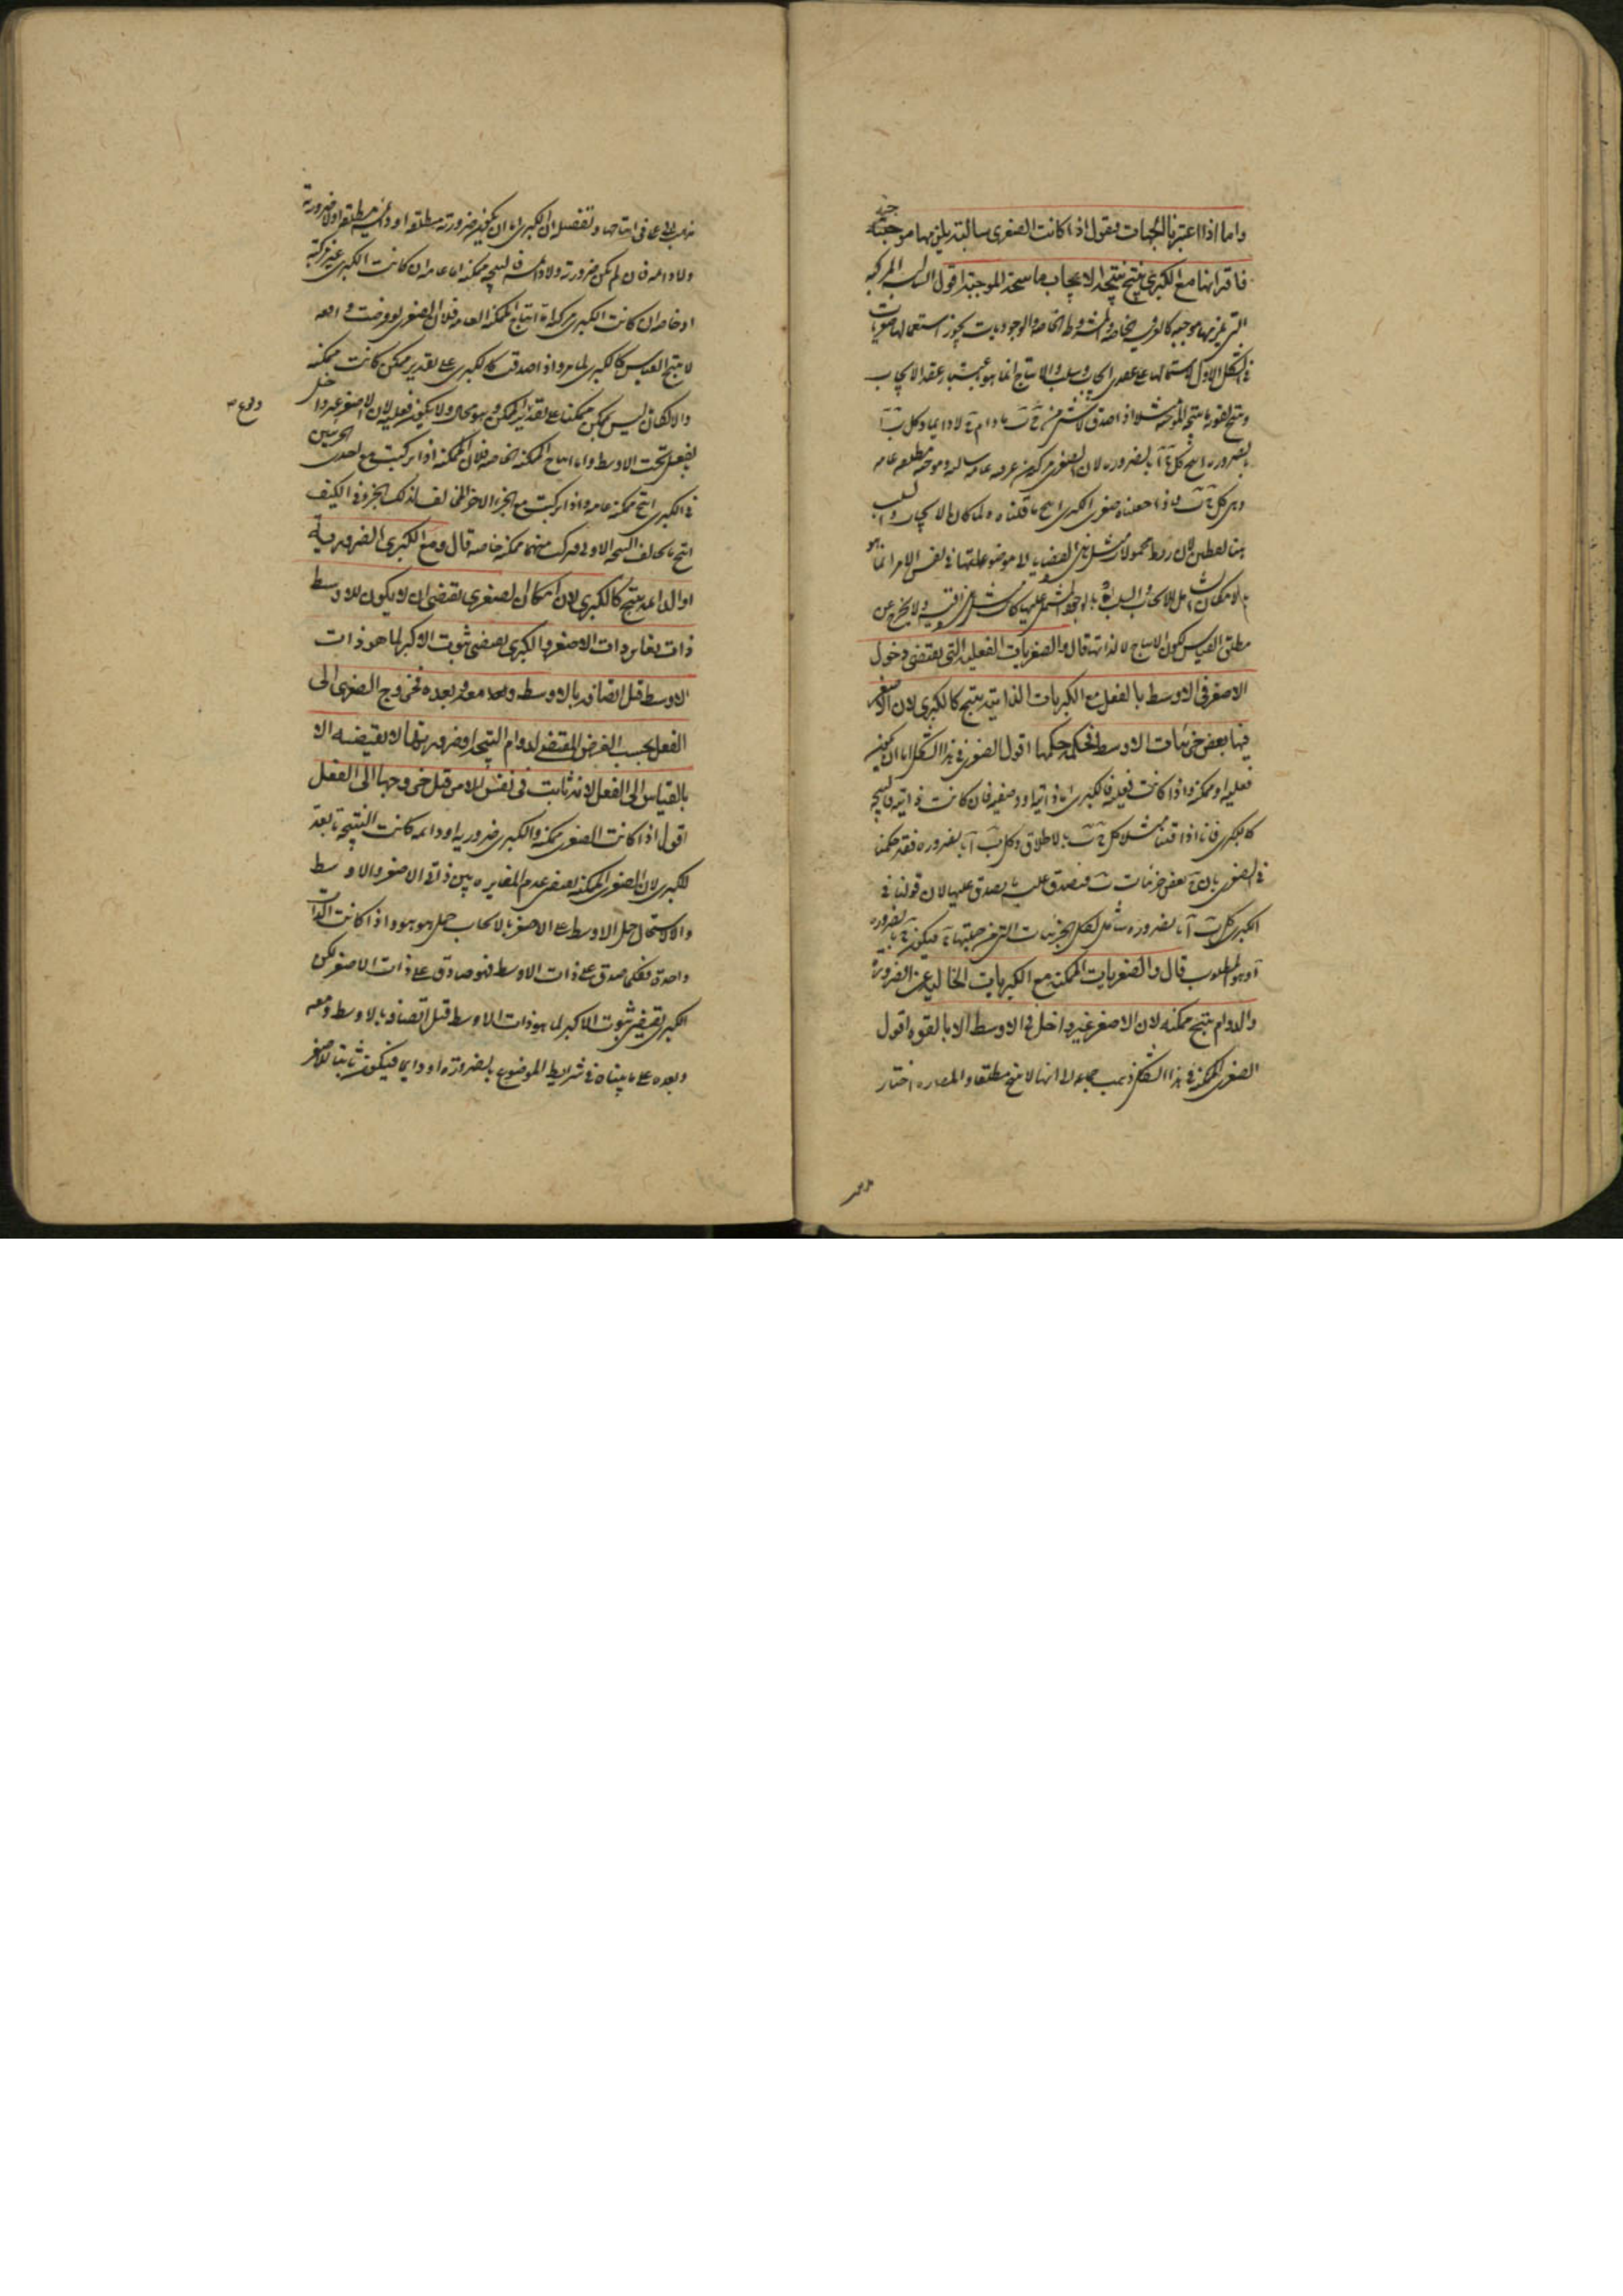 واما اذا اعتبرنا الجهات فيقول اذا كانت الصغرى سالبة يلزمها موجبة
فاقترانها مع الكبرى ينتج نتيجة الايجاب ما ينتجه الموجبة اقول السالبة المركبة
التي يلزمها موجبة كالعرفية الخاصة والمشروطة الخاصة والوجوديات يجوز استعمالها صغريات
في الشكل الاول لاشتمالها على عقدى ايجاب وسلب والانتاج انما هو باعتبار عقد الايجاب
وينتج لقوة ما ينتجه الموجبة مثلا اذا صدق لا شئ من ج ب ما دام ج لا دايما وكل ب آ
بالضرورة انتج كل ج آ بالضرورة لان الصغرى مركبة من عرفية عامة سالبة وموجبة مطلقة عامة
وهى كل ج ب فاذا جعلناه صغرى الكبرى انتج ما قلناه ولما كان الايجاب والسلب
لان ربط محمولات مثل هذه القضايا الى موضوعاتها في نفس الامر انما هو
بالامكان الشامل للايجاب والسلب
مطلق القياس لكون الانتاج لا لذاتها قال والصغريات الفعلية التي يقتضى دخول
الاصغر في الاوسط بالفعل مع الكبريات الذاتية ينتج كالكبرى لان الاصغر
فيها بعض جزئيات الاوسط فحكمه حكمها اقول الصغرى في هذا الشكل اما ان يكون
فعلية او ممكنة واذا كانت فعلية فالكبرى اما ذاتية او وصفية فان كانت ذاتية فالنتيجة
كالكبرى فانا اذا قلنا مثلا كل ج ب بالاطلاق وكل ب آ بالضرورة فقد حكمنا
في الصغرى بان ج بعض جزئيات ب فيصدق عليه ما يصدق عليها لان قولنا في
الكبرى كل ب آ بالضرورة شامل لكل الجزئيات التي من جملتها ج فيكون ج بالضرورة
آ وهو المطلوب قال والصغريات الممكنة مع الكبريات الخالية عن الضرورة
والدوام ينتج ممكنة لان الاصغر غير داخل في الاوسط الا بالقوة اقول
الصغرى الممكنة في هذا الشكل ذهب جماعة الى انها لا ينتج مطلقا والمص اختار
انتاجها وتفصيله ان الكبرى اما ان يكون ضرورية مطلقة او دائمة مطلقة او لا ضرورية
ولا دائمة فان لم يكن ضرورية ولا دائمة فالنتيجة ممكنة اما عامة ان كانت الكبرى غير مركبة
او خاصة ان كانت الكبرى مركبة اما انتاج الممكنة العامة فلان الصغرى لو فرضت واقعة
لانتج القياس كالكبرى لما مر واذا صدقت كالكبرى على تقدير ممكن كانت ممكنة
والا لكان ما ليس بممكن ممكنا على تقدير الممكن وهو محال ولا يكون فعلية لان الاصغر غير داخل
بالفعل تحت الاوسط واما انتاج الممكنة الخاصة فلان الممكنة اذا تركبت مع احدى الجزئين
وقوع
في الكبرى انتج ممكنة عامة واذا تركبت مع الجزء الاخر المخالف لذلك الجزء في الكيف
انتج ما يخالف النتيجة الاولى فتركب منهما ممكنة خاصة قال ومع الكبرى الضرورية
او الدائمة ينتج كالكبرى لان امكان الصغرى يقتضى ان لا يكون للاوسط
ذات يغاير ذات الاصغر والكبرى يقتضى ثبوت الاكبر لما هو ذات
الاوسط قبل اتصافه بالاوسط ومعه وبعده فخروج الصغرى الى
الفعل بحسب الفرض المقتضى لدوام النتيجة او ضرورتها لا يقتضيه الا
بالقياس الى الفعل لانه ثابت في نفس الامر قبل خروجها الى الفعل
اقول اذا كانت الصغرى ممكنة والكبرى ضرورية او دائمة كانت النتيجة تابعة
للكبرى لان الصغرى الممكنة يقتضى عدم المغايرة بين ذاتي الاصغر والاوسط
والا لاستحال حمل الاوسط على الاصغر بالايجاب حمل هو هو واذا كانت الذات
واحدة فكلما صدق على ذات الاوسط فهو صادق على ذات الاصغر لكن
الكبرى يقتضى ثبوت الاكبر لما هو ذات الاوسط قبل اتصافه بالاوسط ومعه
وبعده على ما بيناه في شرايط الموضوع بالضرورة او دايما فيكون ثابتا للاصغر